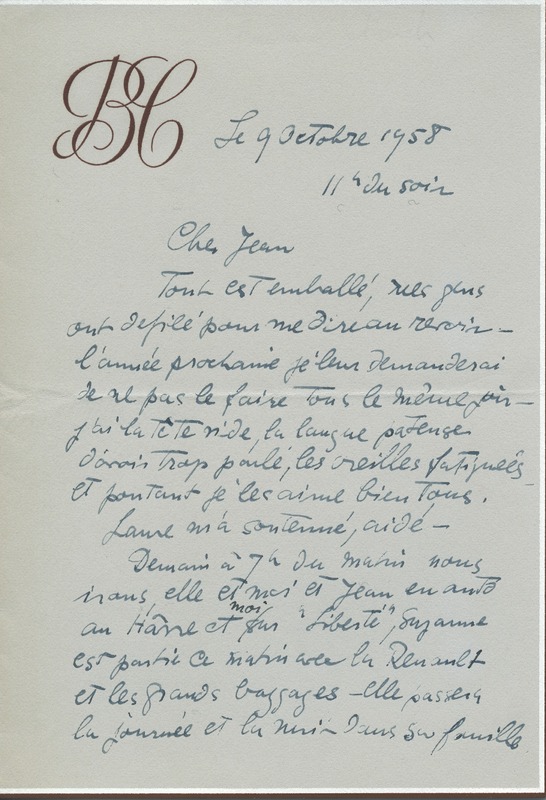 BC
Le 9 Octobre 1958
11h du soir
Cher Jean
Tout est emballé, mes gens
ont defilé pour me dire au revoir –
l'année prochaine je leur demanderai
de ne pas le faire tous le même jour –
j'ai la tête vide, la langue pateuse
d'avoir trop parlé, les oreilles fatiguées
et pourtant je les aime bien tous.
Laure m'a soutenue, aidé –
Demain à 7h du matin nous
irons, elle et moi et Jean en auto
au Hâvre et moi sur "Liberté", Suzanne
est partie ce matin avec la Renault
et les grands baggages – elle passera
la journée et la nuit dans sa famille